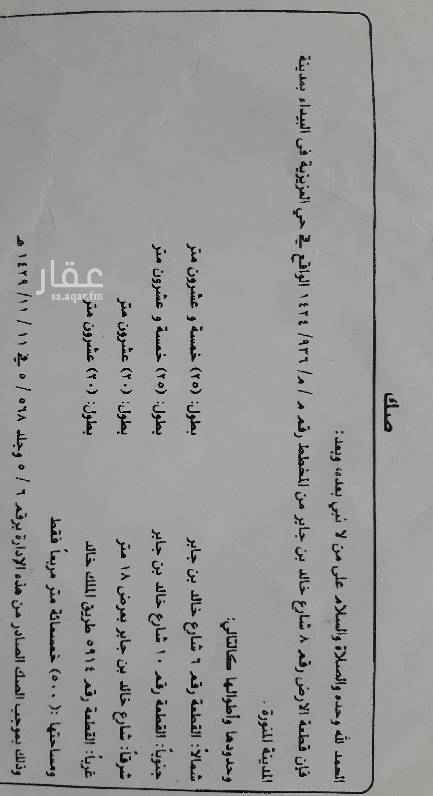 صك
الحمد لله وحده والصلاة والسلام على من لا نبي بعده، وبعد:
فإن قطعة الارض رقم ٨ شارع خالد بن جابر من المخطط رقم م / م / ٩٣٦ / ١٤٢٤ الواقع في حي العزيزية في البيداء بمدينة
المدينة المنورة .
وحدودها وأطوالها كالتالي:
شمالاً: القطعة رقم ٦ شارع خالد بن جابر بطول: (٢٥) خمسة و عشرون متر
جنوباً: القطعة رقم ١٠ شارع خالد بن جابر بطول: (٢٥) خمسة و عشرون متر
شرقاً: شارع خالد بن جابر بعرض ١٨ متر بطول: (٢٠) عشرون متر
غرباً: القطعة رقم ٥٩١٤ طريق الملك خالد بطول: (٢٠) عشرون متر
ومساحتها :(٥٠٠) خمسمائة متر مربعاً فقط
وذلك بموجب الصك الصادر من هذه الإدارة برقم ٦ / ٥ وجلد ٥٦٨ / ٥ في ١١ / ١١ / ١٤٢٩ هـ
عقار
sa.aqar.fm